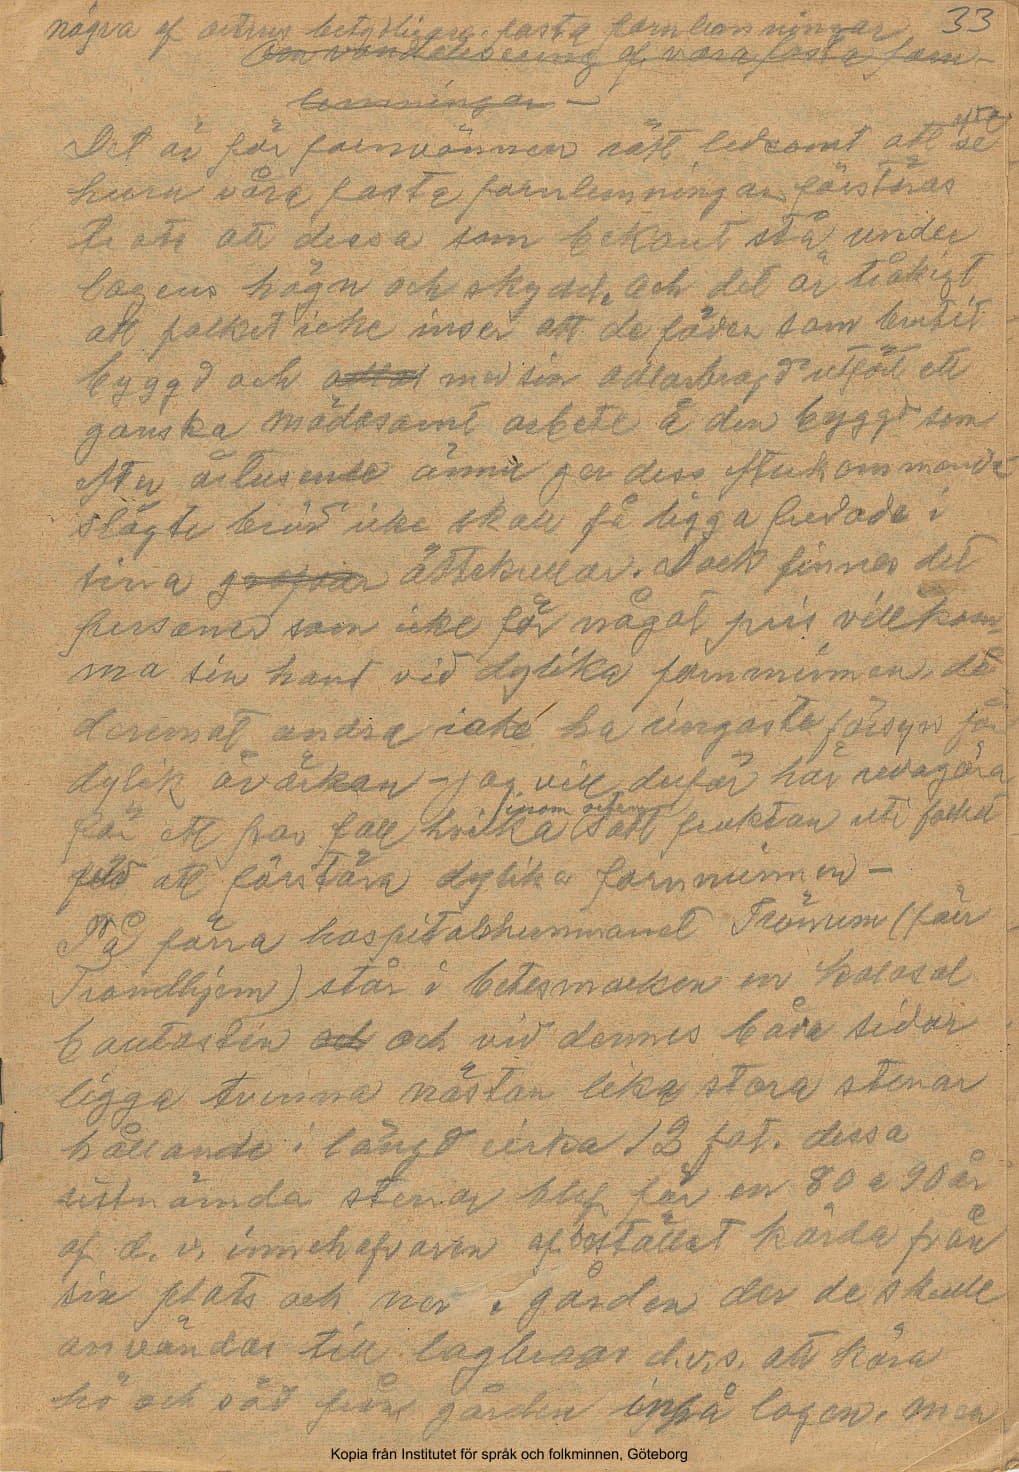 33
några af ortens betydligare fasta fornlemningar
Om vandalisering af våra fasta forn-
lemningar –
Det är för fornvännen rätt ledsamt att se
huru våra fasta fornlemningar förstöras
trots att dessa som bekant stå under
lagens hägn och skydd, och det är tråkigt
att folket icke inser att de fäder som brutit
bygd och med sin odlarbragd utfört ett
ganska mödosamt arbete å den bygd som
efter årtusende ännu ger dess efterkommande
slägte bröd icke skall få ligga fredade i
sina ättekullar. Dock finnes det
personer som icke för något pris vill kom-
ma sin hand vid dylika fornminnen, då
deremot andra icke ha ringaste försyn för
dylik åvärkan – jag vill derför här redogöra
för ett par fall hvilka inom orten satt fruktan uti folket
för att förstöra dylika fornminnen –
På förra hospitalshemmanet Trönium (förr
Trondhjem) står i betesmarken en kolosal
bautasten och och vid dennes båda sidor
ligga tvenna nästan lika stora stenar
hållande i längd cirka 12 fot. dessa
sistnämda stenar blef för en 80 a 90 år
af d. v. innehafvaren af stället körda från
sin plats och ner i gården der de skulle
användas till lagbroar d.v.s. att köra
hö och säd från gården inpå logen. men
Kopia från Institutet för språk och folkminnen, Göteborg